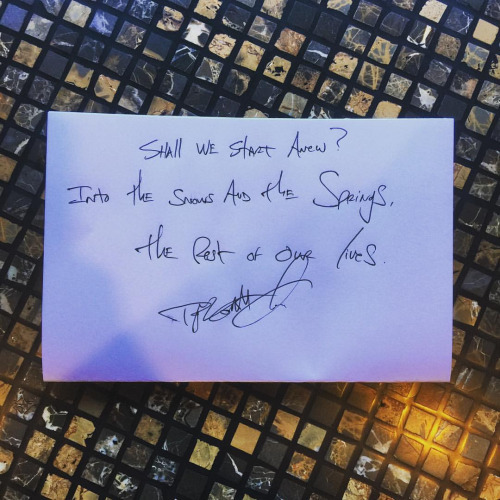 Shall we start Anew?
Into the snows And the Springs,
the Rest of our lives.